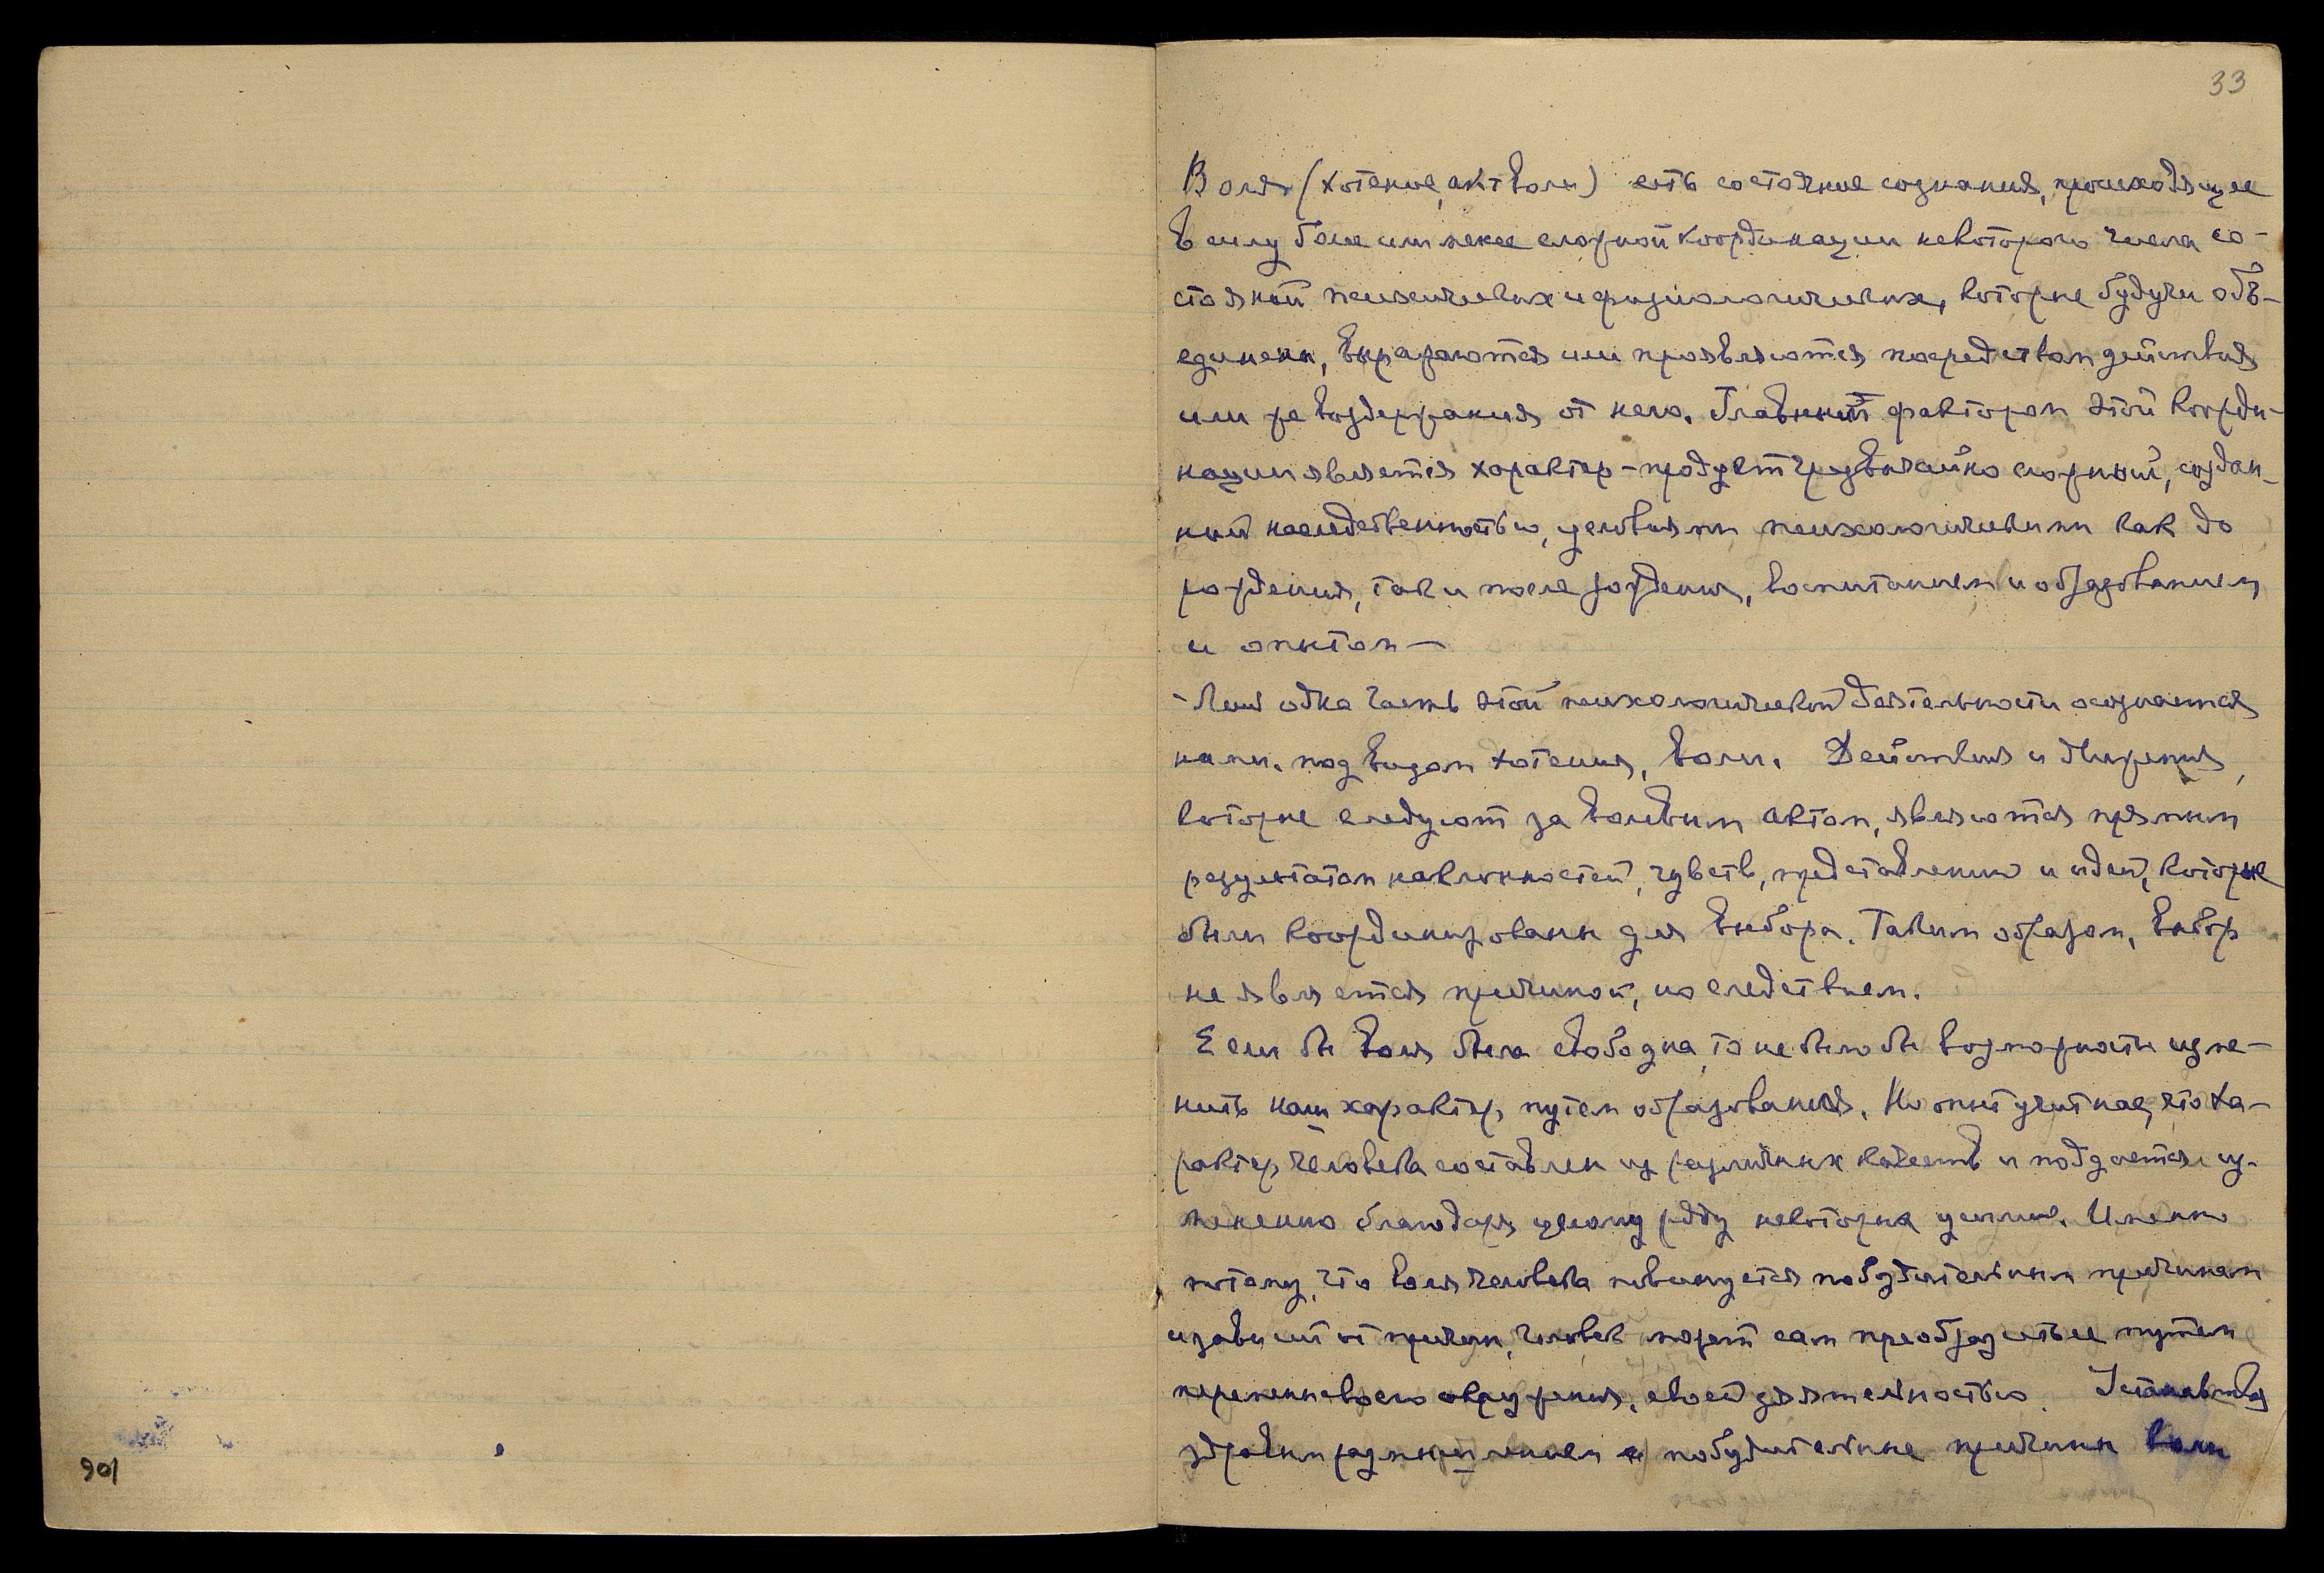 33
Воля (хотение, акт воли) есть состояние сознания, происходящее
в силу более или менее сложной координации некоторого числа со-
стояний психических и физиологических, которые будучи объ-
единены, выражаются или проявляются посредством действия
или же воздержания от него. Главный фактором этой коорди-
нации является характер - продукт чрезвычайно сложный, создан-
ный наследственностью, условиями психологическими как до
рождения, так и после рождения, воспитанием и образованием
и опытом —
- Лишь одна часть этой психологической деятельности осознается
нами. под видом хотения, воли. Действия и движения,
которые следуют за волевым актом, являются прямым
результатом наклонностей, чувств, представлений и идей, которые
были координированы для выбора. Таким образом, выбор
не является причиной, но следствием.
Если бы воля была свободна, то не было бы возможности изме-
нить наш характер, путем образования. Но опыт учит нас, что ха-
рактер человека составлен из различных качеств и поддается из-
менению благодаря целому ряду некоторых усилий. Именно
потому, что воля человека повинуется побудительным причинам
и зависит от причин, человек может сам преобразить ее путем
перемены своего окружения, своей деятельностью.
здравым размышлением побудительные причины воли
106